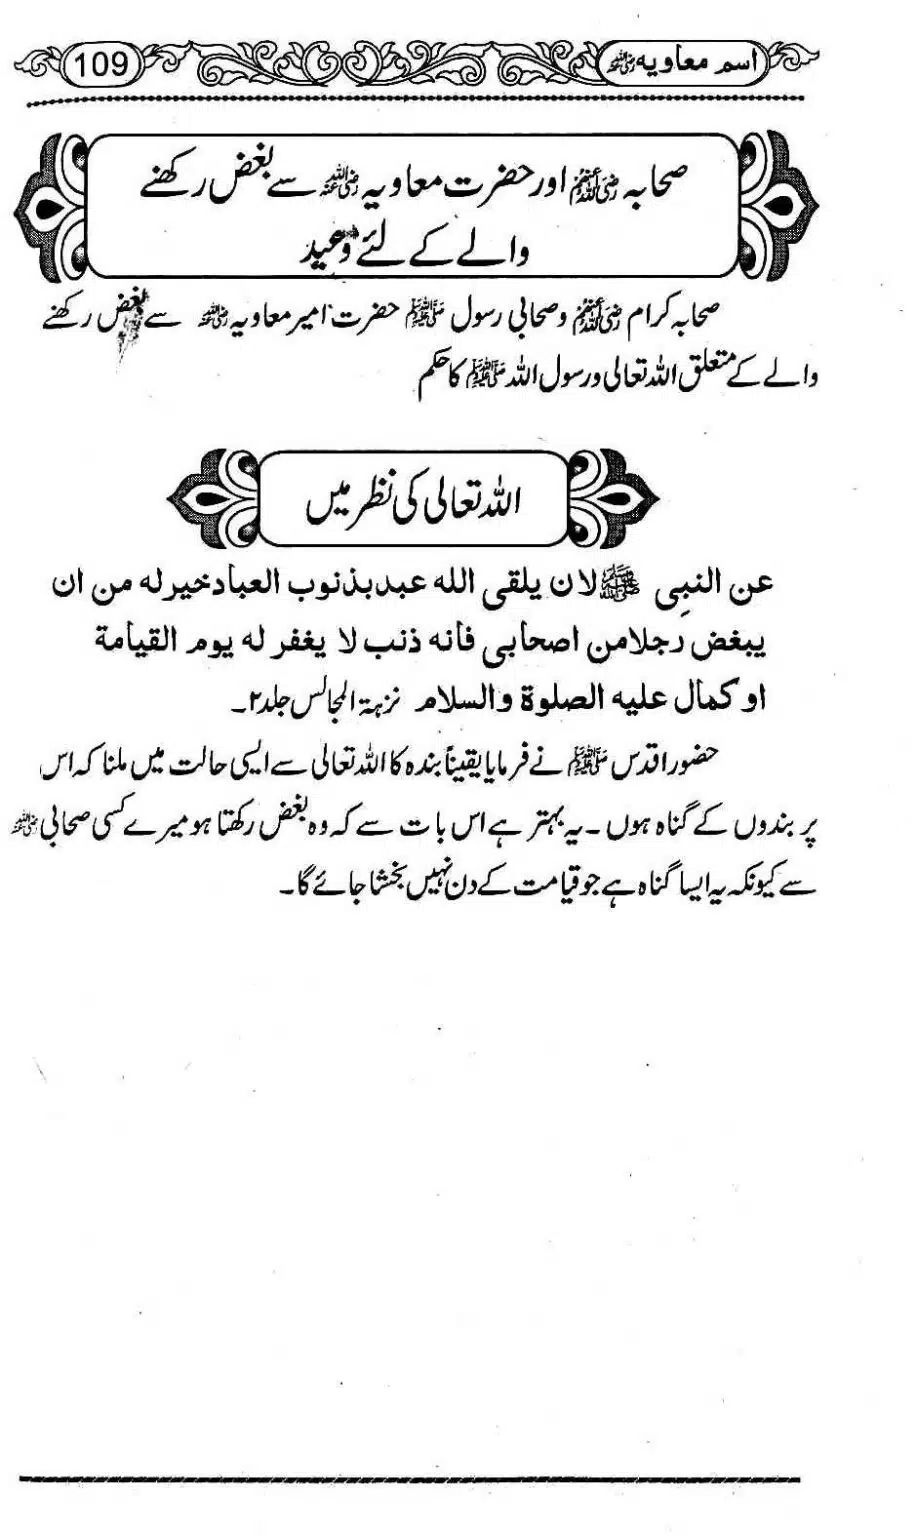 اسم معاویہ رضی اللہ عنہ 109
صحابہ رضی اللہ عنہم اور حضرت معاویہ رضی اللہ عنہ سے بغض رکھنے
والے کے لئے وعید
صحابہ کرام رضی اللہ عنہم و صحابی رسول ﷺ حضرت امیر معاویہ رضی اللہ عنہ سے بغض رکھنے
والے کے متعلق اللہ تعالی و رسول اللہ ﷺ کا حکم
اللہ تعالی کی نظر میں
عن النبی ﷺ لان یلقی اللہ عبد بذنوب العباد خیر له من ان
یبغض رجلا من اصحابی فانه ذنب لا یغفر له یوم القیامة
او کمال علیه الصلوة والسلام نزہۃ المجالس جلد ۲۔
حضور اقدس ﷺ نے فرمایا یقیناً بندہ کا اللہ تعالی سے ایسی حالت میں ملنا کہ اس
پر بندوں کے گناہ ہوں ۔ یہ بہتر ہے اس بات سے کہ وہ بغض رکھتا ہو میرے کسی صحابی رضی اللہ عنہ
سے کیونکہ یہ ایسا گناہ ہے جو قیامت کے دن نہیں بخشا جائے گا۔